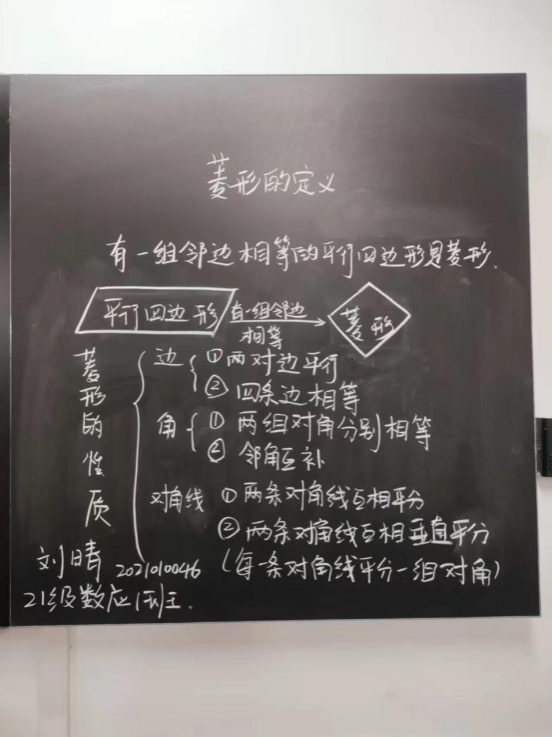 菱形的定义
有一组邻边相等的平行四边形是菱形.
平行四边形 有一组邻边相等 菱形
菱形的性质
边 ①两对边平行
②四条边相等
角 ①两组对角分别相等
②邻角互补
对角线 ①两条对角线互相平分
②两条对角线互相垂直平分
(每一条对角线平分一组对角)
刘晴 2021010046
21级数应1班